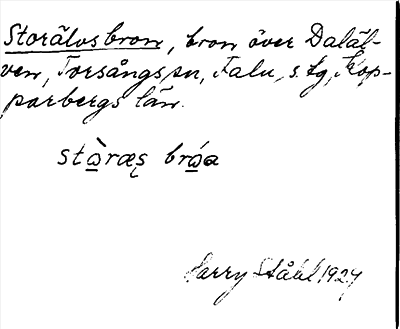 Storälvsbron, bron över Daläl-
ven, Torsångs sn, Falu, s. tg, Kop-
parbergs län.
bra
Harry Ståhl 1927